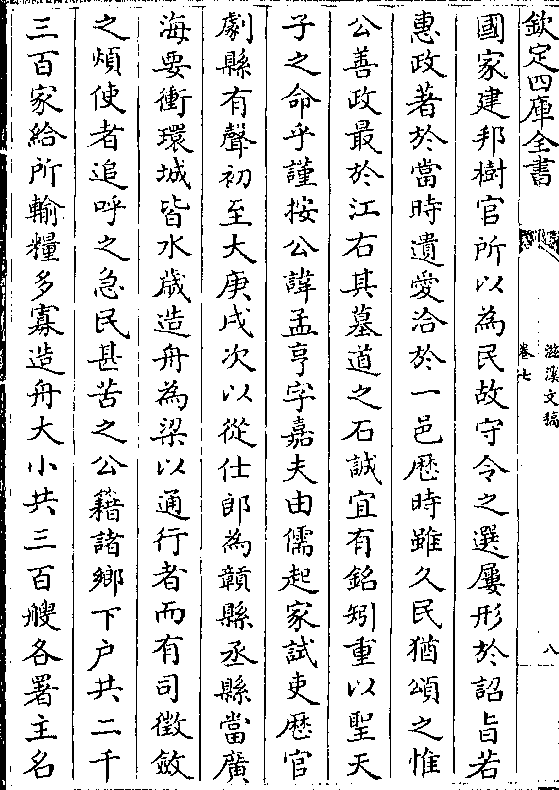 欽定四庫全書
滋溪文稿
卷七
八
國家建邦樹官所以為民故守令之選屢形於詔旨若
惠政著於當時遺愛洽於一邑歴時雖久民猶頌之惟
公善政最於江右其墓道之石誠宜有銘矧重以聖天
子之命乎謹按公諱孟亨字嘉夫由儒起家試吏歴官
劇縣有聲初至大庚戌次以從仕郎為贛縣丞縣當廣
海要衝環城皆水歳造舟為梁以通行者而有司徴斂
之煩使者追呼之急民甚苦之公籍諸鄉下户共二千
三百家給所輸糧多寡造舟大小共三百艘各署主名